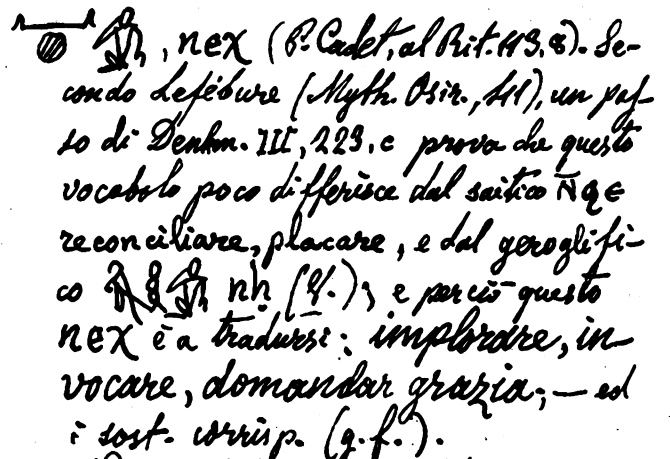 , nex (P. Cadet, al Rit. 113, 8). Se-
condo Lefébure (Myth. Osir., 211), un pas-
so di Denkm. III, 223, c prova che questo
vocabolo poco differisce dal saitico
reconciliare, placare, e dal geroglifi-
co nḥ (q.); e perciò questo
nex è a tradursi: implorare, in-
vocare, domandar grazia; — ed
i sost. corrisp. (g. f.).